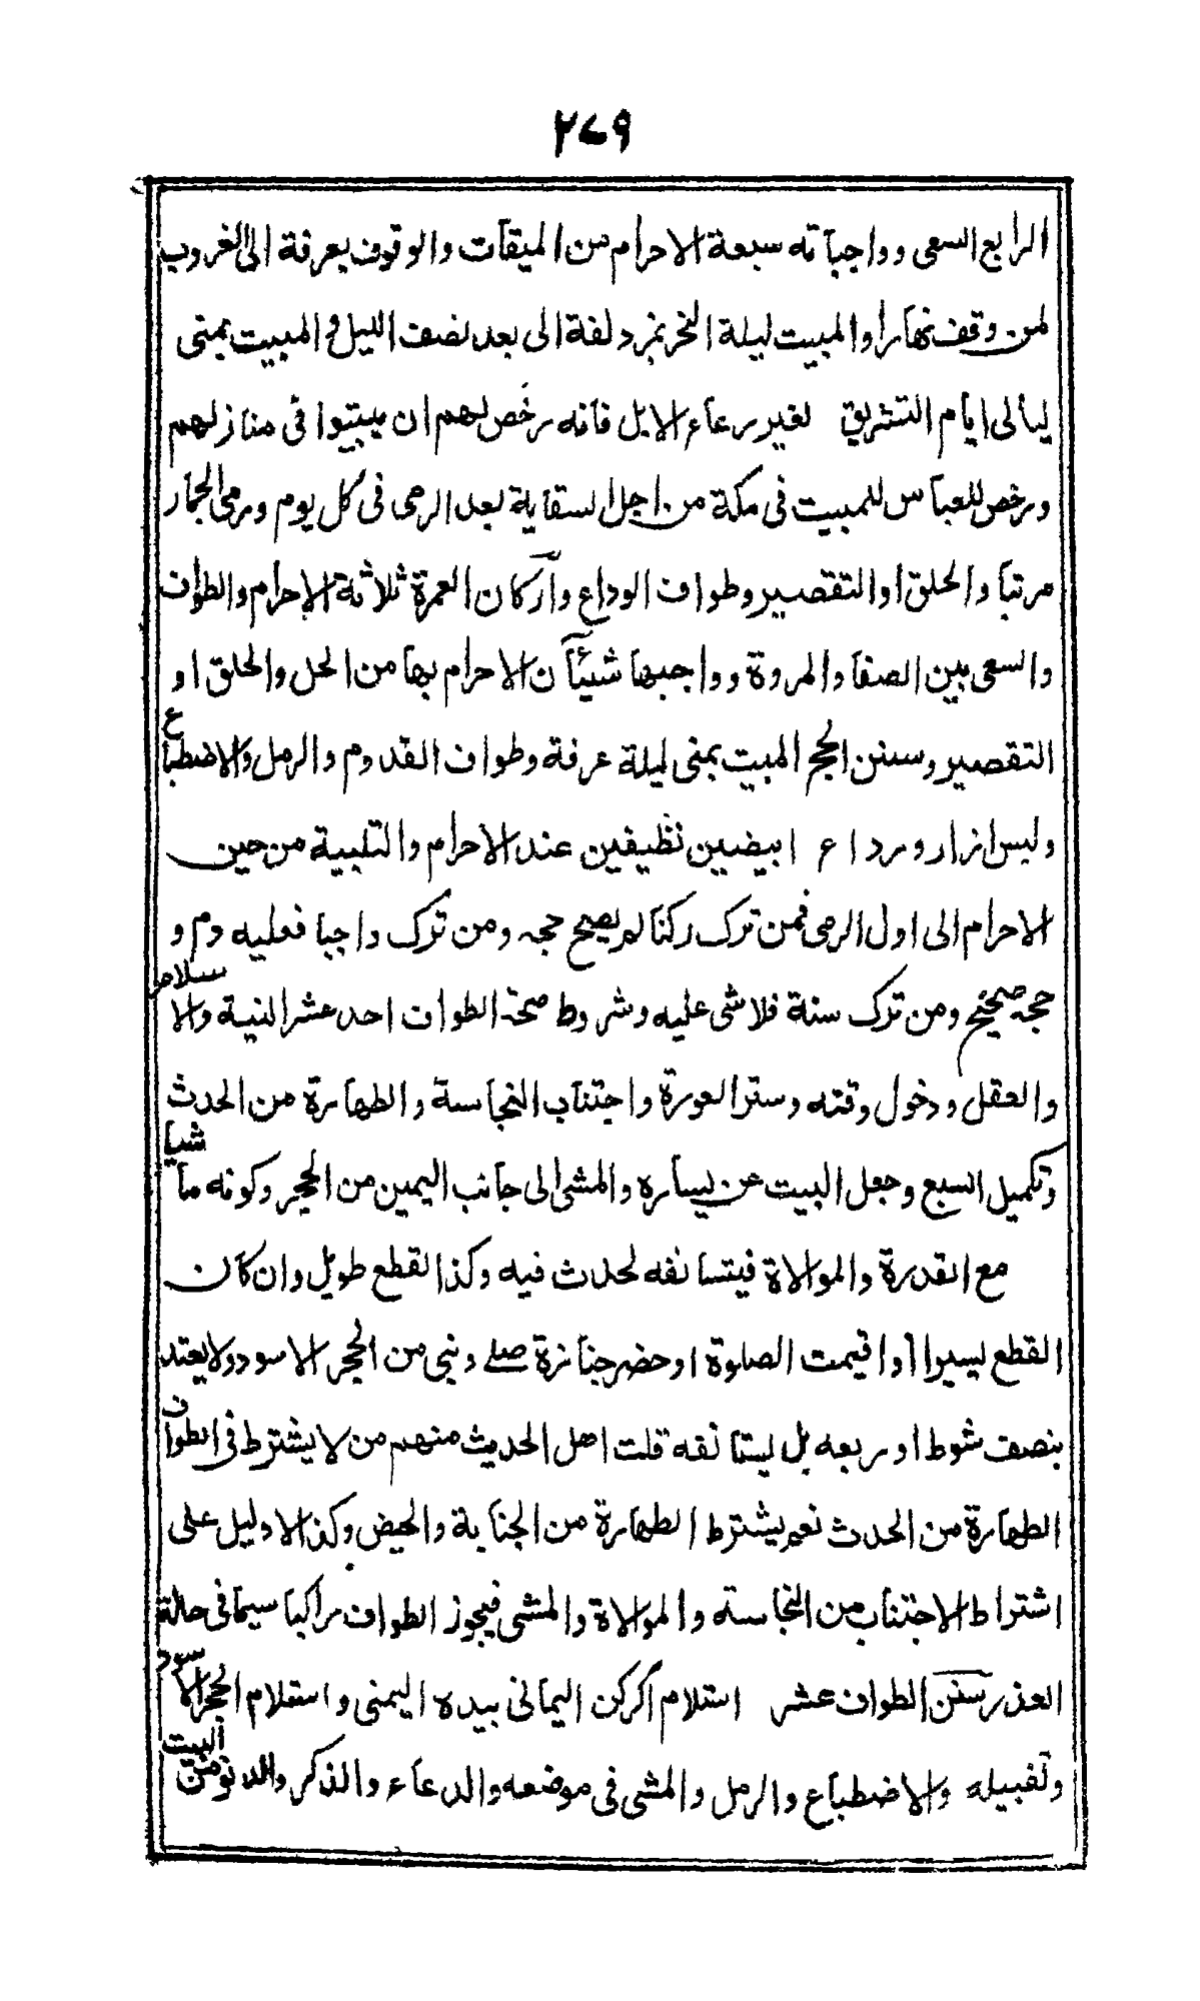 ٢٧٩
الرابع السعى وواجباته سبعة الاحرام من الميقات والوقوف بعرفة الى الغروب
لمن وقف نهارا والمبيت ليلة النحر بمزدلفة الى بعد نصف الليل والمبيت بمنى
ليالى ايام التشريق لغير رعاء الابل فانه رخص لهم ان يبيتوا فى منازلهم
ورخص للعباس للمبيت فى مكة من اجل السقاية بعد الرمى فى كل يوم ورمى الجمار
مرتبا والحلق او التقصير وطواف الوداع واركان العمرة ثلاثة الاحرام والطواف
والسعى بين الصفا والمروة وواجبها شيئآن الاحرام بها من الحل والحلق او
التقصير وسنن الحج المبيت بمنى ليلة عرفة وطواف القدوم والرمل والاضطباع
ولبس ازار ورداء ابيضين نظيفين عند الاحرام والتلبية من حين
الاحرام الى اول الرمى فمن ترك ركنا لم يصح حجه ومن ترك واجبا فعليه دم و
حجه صحيح ومن ترك سنة فلاشى عليه وشروط صحة الطواف احد عشر النية والاسلام
والعقل ودخول وقته وستر العورة واجتناب النجاسة والطهارة من الحدث
وتكميل السبع وجعل البيت عن يساره والمشى الى جانب اليمين من الحجر وكونه ماشيا
مع القدرة والموالاة فيتسانفه لحدث فيه وكذا لقطع طويل وان كان
القطع يسيرا او اقيمت الصلوة او حضر جنازة صلے وبنى من الحجر الاسود ولا يعتد
بنصف شوط او ربعه بل يستانفه قلت اهل الحديث منهم من لا يشترط فى الطواف
الطهارة من الحدث نعم يشترط الطهارة من الجنابة والحيض وكذا لا دليل على
اشتراط الاجتناب من النجاسته والموالاة والمشى فيجوز الطواف راكبا سيما فى حالة
العذر وسنن الطواف عشر استلام الركن اليمانى بيده اليمنى واستلام الحجر الاسود
وتقبيله والاضطباع والرمل والمشى فى موضعه والدعاء والذكر والدنو من البيت